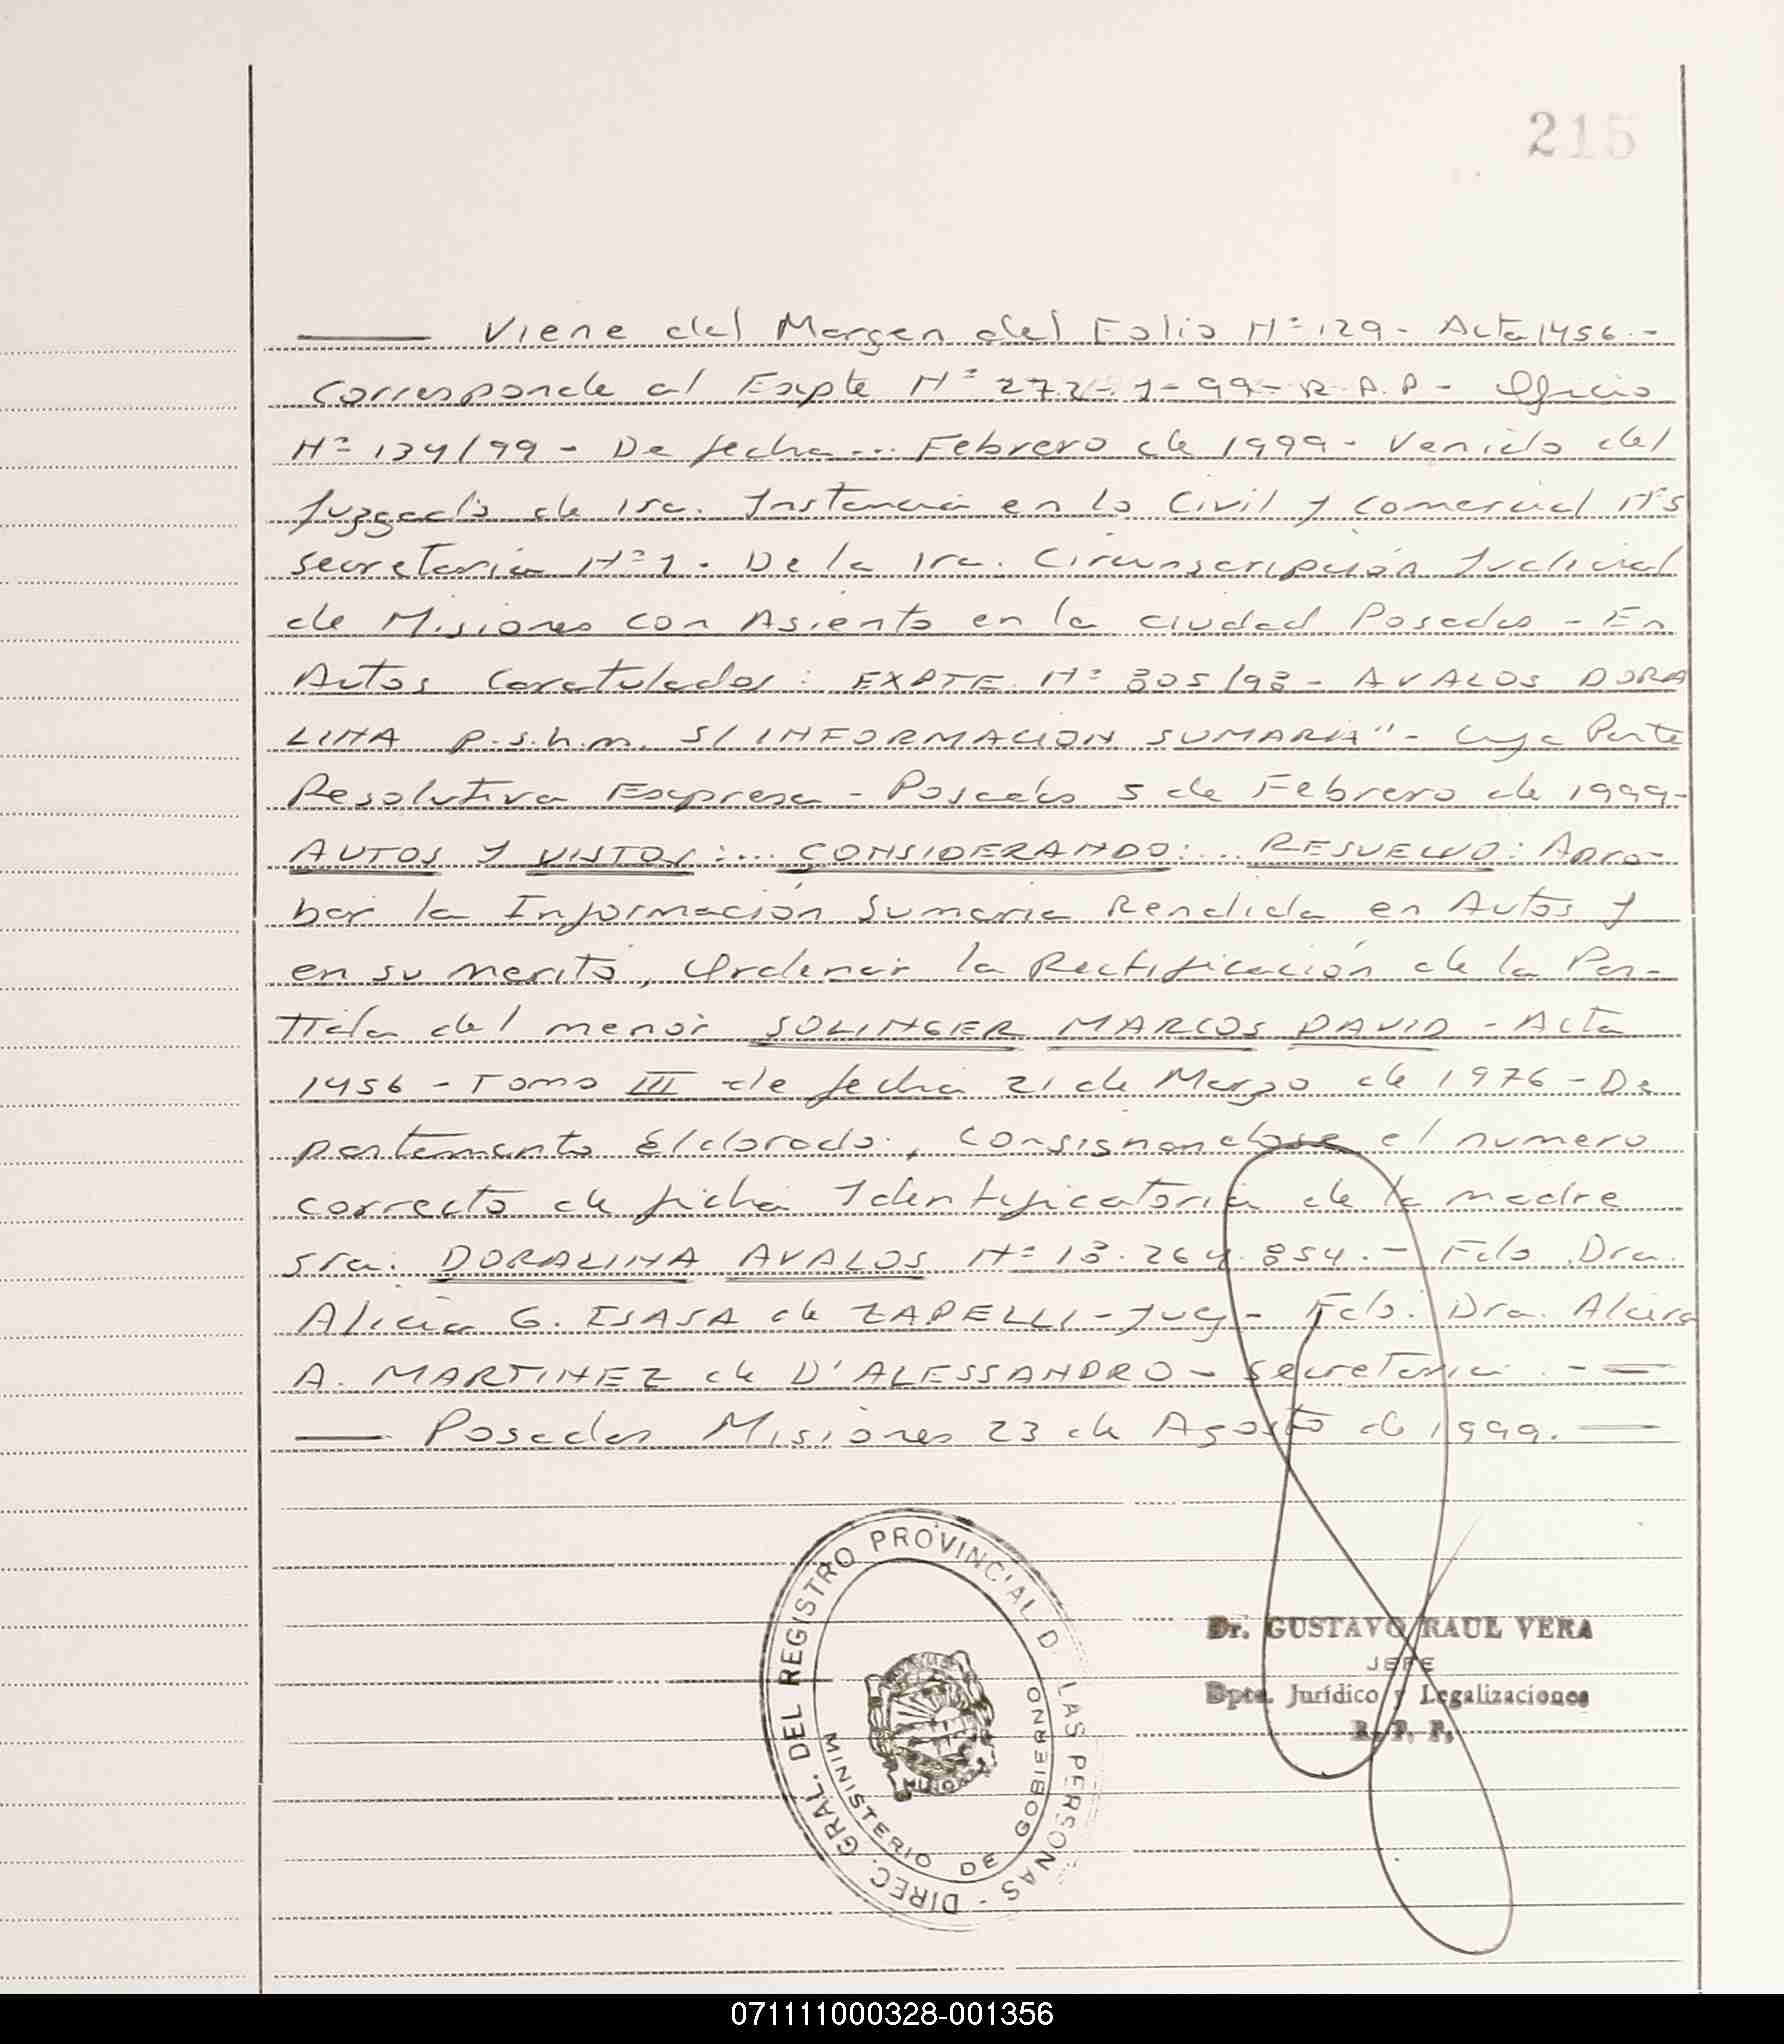 215
Viene del Margen del Folio Nº 129 - Acta 1456.-
Corresponde al Expte Nº 272-J-99- R.P.P - Oficio
Nº 134/99 - De fecha... Febrero de 1999 - Venido del
Juzgado de 1ra. Instancia en lo Civil y Comercial Nº5
secretaria Nº1. De la 1ra. Circunscripción Judicial
de Misiones con Asiento en la ciudad Posadas - En
Autos Caratulados: EXPTE Nº 305/93 - AVALOS DORA
LINA p.s.h.m. S/ INFORMACION SUMARIA" - Cuya Parte
Resolutiva Expresa - Posadas 5 de Febrero de 1999-
AUTOS Y VISTOS:... CONSIDERANDO:... RESUELVO: Apro-
bar la Información Sumaria Rendida en Autos y
en su merito, Ordenar la Rectificación de la Par-
tida del menor SOLINGER MARCOS DAVID - Acta
1456 - Tomo III de fecha 21 de Marzo de 1976 - De
partamento Eldorado, Consignandose el numero
correcto de ficha Identificatoria de la madre
sra. DORALINA AVALOS Nº 13.264.854.- Fdo. Dra.
Alicia G. ISASA de ZAPELLI - Juez - Fdo. Dra. Alcira
A. MARTINEZ de D'ALESSANDRO - Secretaria.-
Posadas Misiones 23 de Agosto de 1999.
DIREC. GRAL. DEL REGISTRO PROVINCIAL D LAS PERSONAS -
MINISTERIO DE GOBIERNO
Dr. GUSTAVO RAUL VERA
JEFE
Dpto. Jurídico y Legalizaciones
R. P. P.
071111000328-001356